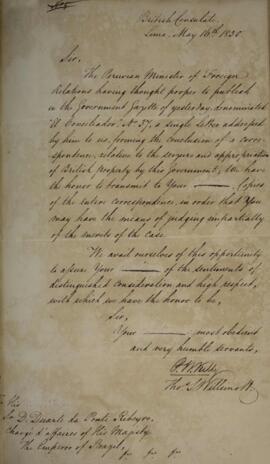 British Consulate
Lima, May 16th. 1830.
Sir,
The Peruvian Minister of Foreign
Relations having thought proper to publish
in the Government Gazette of yesterday, denominated
"El Conciliador" No. 37, a single letter addressed
by him to us, forming the conclusion of a corre-
spondence, relative to the seizure and appropriation
of British Property by this Government, We have
the honor to transmit to Your ——— Copies
of the entire correspondence, in order that You
may have the means of judging impartially
of the merits of the Case.
We avail ourselves of this opportunity
to assure Your ——— of the sentiments of
distinguished consideration and high respect,
with which we have the honor to be,
Sir,
Your ——— most obedient
and very humble servants,
Kelly
Thos. Willimott
Duarte da Ponte Ribeyro,
Chargé d'affaires of His Majesty
The Emperor of Brazil,